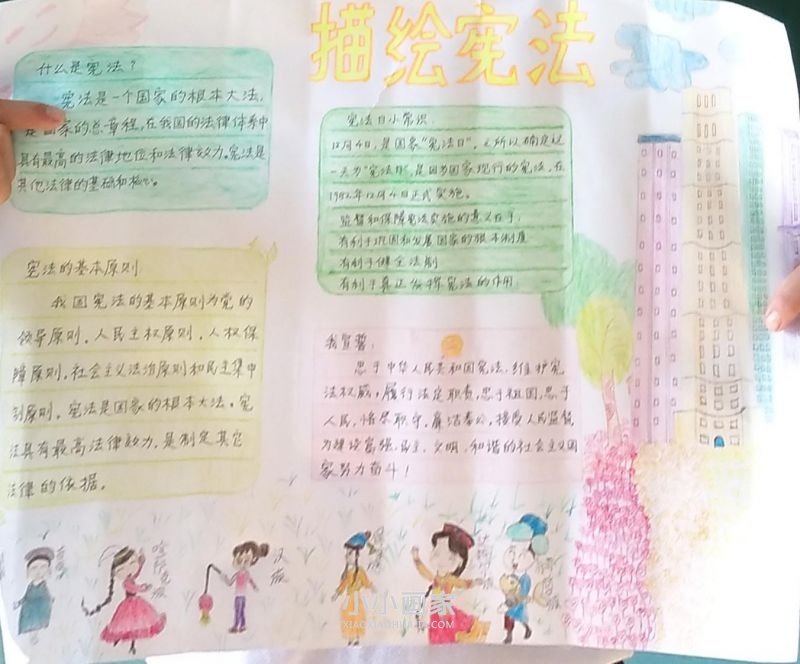 描绘宪法
什么是宪法？
宪法是一个国家的根本大法，
是国家的总章程，在我国的法律体系中
具有最高的法律地位和法律效力。宪法是
其他法律的基础和核心。
宪法日小常识：
12月4日，是国家"宪法日"，之所以确定这
一天为"宪法日"，是因为国家现行的宪法，在
1982年12月4日正式实施。
监督和保障宪法实施的意义在于：
有利于巩固和发展国家的根本制度
有利于健全法制
有利于真正发挥宪法的作用
宪法的基本原则
我国宪法的基本原则为党的
领导原则，人民主权原则，人权保
障原则，社会主义法治原则和民主集中
制原则。宪法是国家的根本大法。宪
法具有最高法律效力，是制定其它
法律的依据。
我宣誓：
忠于中华人民共和国宪法，维护宪
法权威，履行法定职责，忠于祖国，忠于
人民，恪尽职守，廉洁奉公，接受人民监督，
为建设富强、民主、文明、和谐的社会主义国
家努力奋斗！
汉族
小小画家
XIAOXIAOHUAJIA.COM